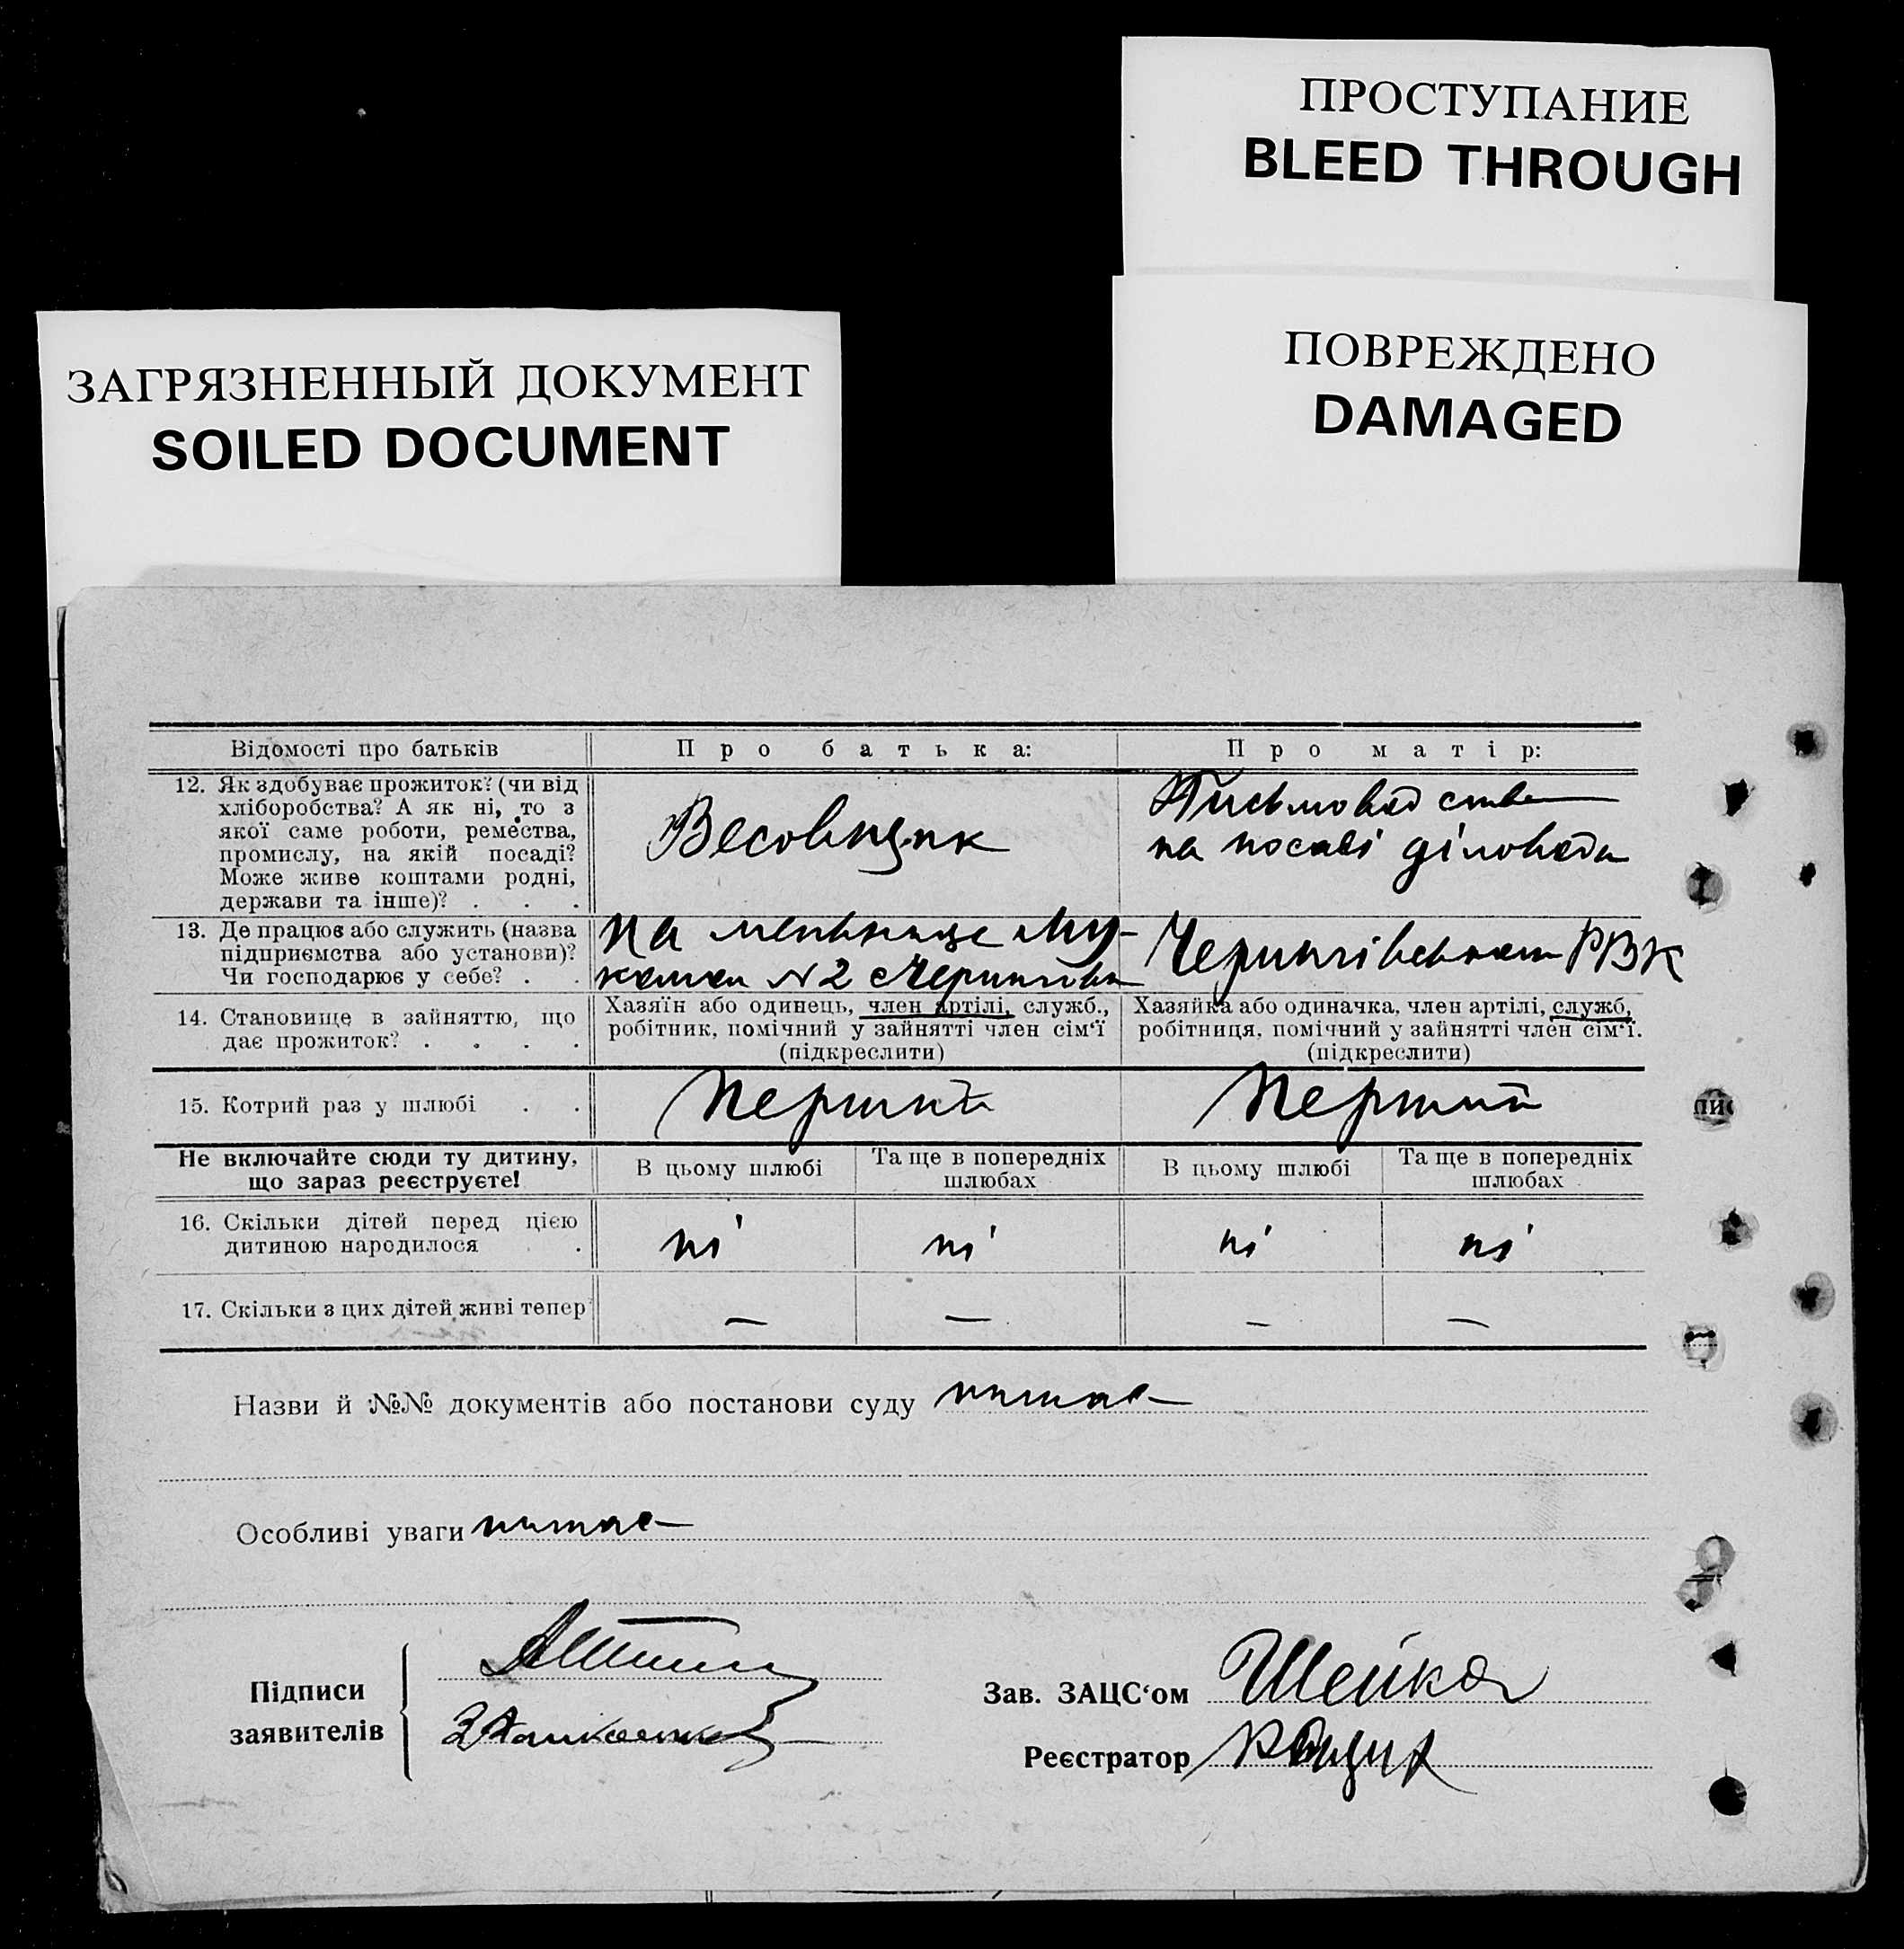 ПРОСТУПАНИЕ
BLEED THROUGH
ПОВРЕЖДЕНО
DAMAGED
ЗАГРЯЗНЕННЫЙ ДОКУМЕНТ
SOILED DOCUMENT
Відомості про батьків
Про батька:
Про матір:
12. Як здобуває прожиток? (чи від
хліборобства? А як ні, то з
якої саме роботи, ремества,
промислу, на якій посаді?
Може живе коштами родні,
держави та інше)? . . .
Весовщик
Письмовод
на посаді діловода
13. Де працює або служить (назва
підприємства або установи)?
Чи господарює у себе? . .
На N2
РВК
14. Становище в зайняттю, що
дає прожиток? . . . .
Хазяїн або одинець, член артілі, служб.,
робітник, помічний у зайнятті член сім'ї
(підкреслити)
Хазяйка або одиначка, член артілі, служб,
робітниця, помічний у зайнятті член сім'ї.
(підкреслити)
15. Котрий раз у шлюбі . .
Перший
Перший
Не включайте сюди ту дитину,
що зараз реєструєте!
В цьому шлюбі
Та ще в попередніх
шлюбах
В цьому шлюбі
Та ще в попередніх
шлюбах
16. Скільки дітей перед цією
дитиною народилося .
ні
ні
ні
ні
17. Скільки з цих дітей живі тепер
—
—
—
—
Назви й №№ документів або постанови суду немає
Особливі уваги немає
Підписи
заявителів
Зав. ЗАЦС'ом Шейко
Реєстратор